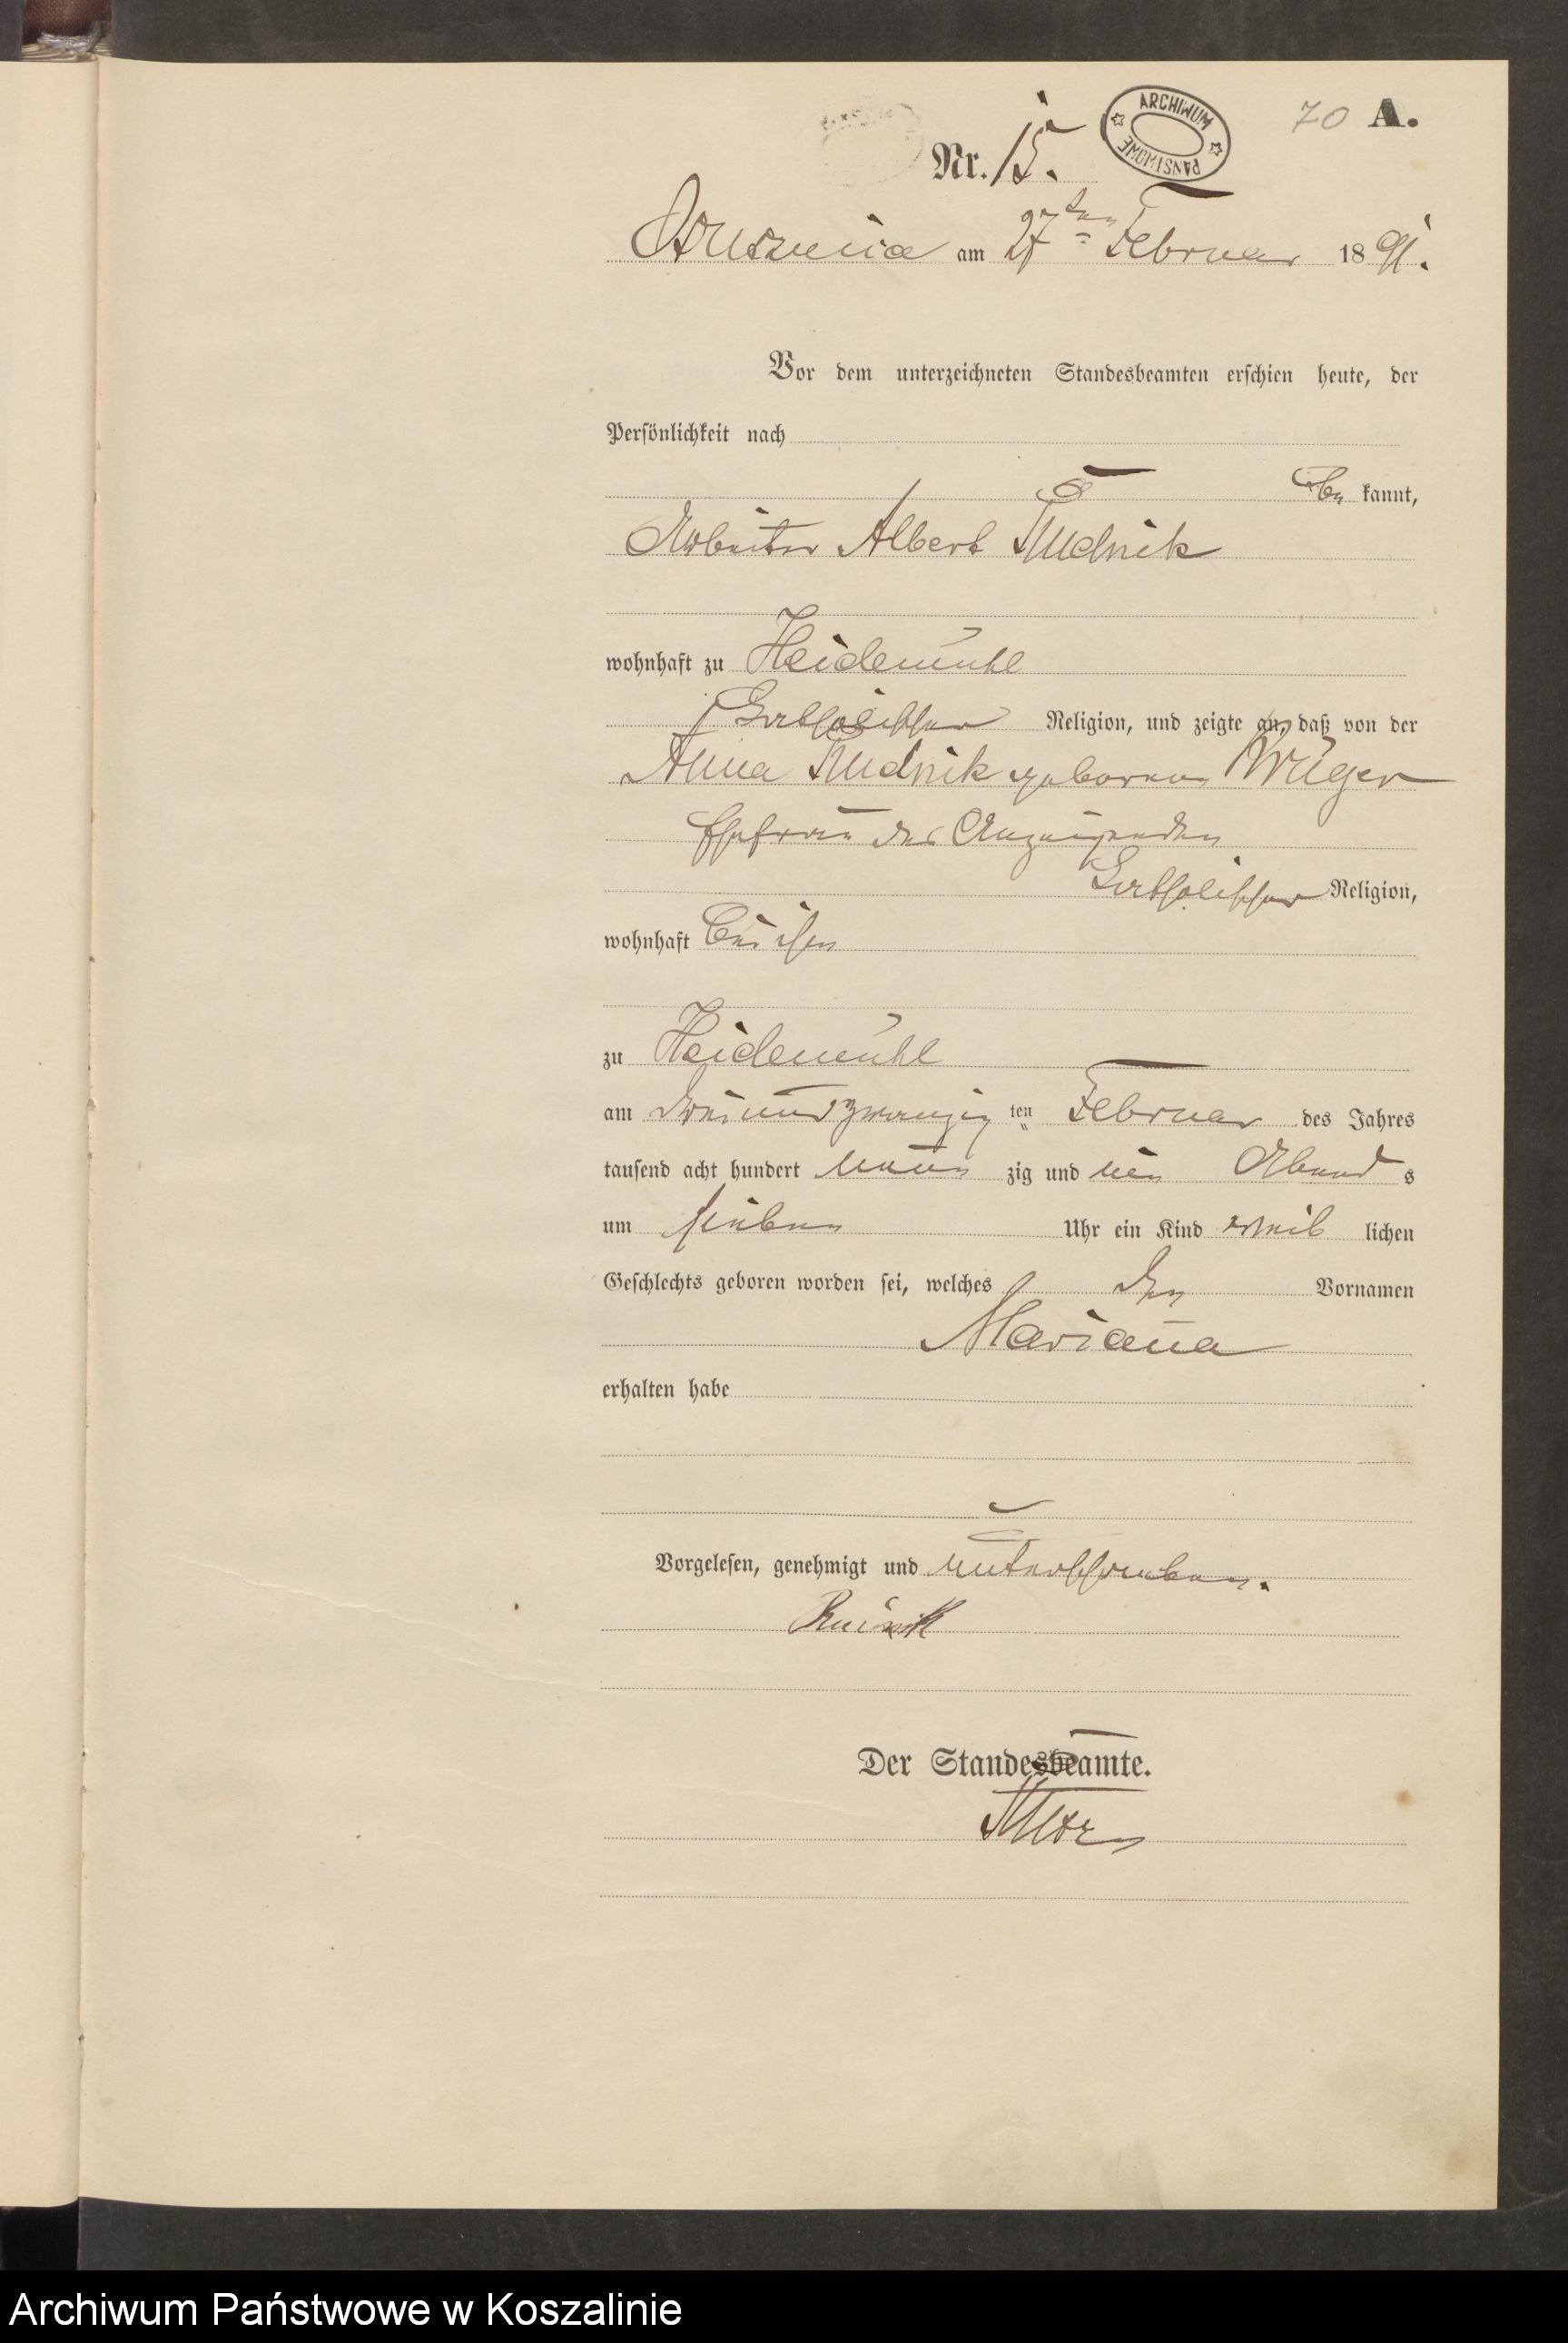 70 A.
ARCHIWUM PAŃSTWOWE
Nr. 15.
am 27ten Februar 1891.
Vor dem unterzeichneten Standesbeamten erschien heute, der
Persönlichkeit nach
be kannt,
Arbeiter Albert Rudnik
wohnhaft zu Heidemühl
katholischer Religion, und zeigte an, daß von der
Anna Rudnik geborene Krüger
Ehefrau des Anzeigenden
katholischer Religion,
wohnhaft bei ihm
zu Heidemühl
am dreiundzwanzig ten Februar des Jahres
tausend acht hundert neun zig und ein Abend s
um sieben Uhr ein Kind weib lichen
Geschlechts geboren worden sei, welches den Vornamen
Mariana
erhalten habe
Vorgelesen, genehmigt und unterschrieben.
Rudnik
Der Standesbeamte.
Archiwum Państwowe w Koszalinie